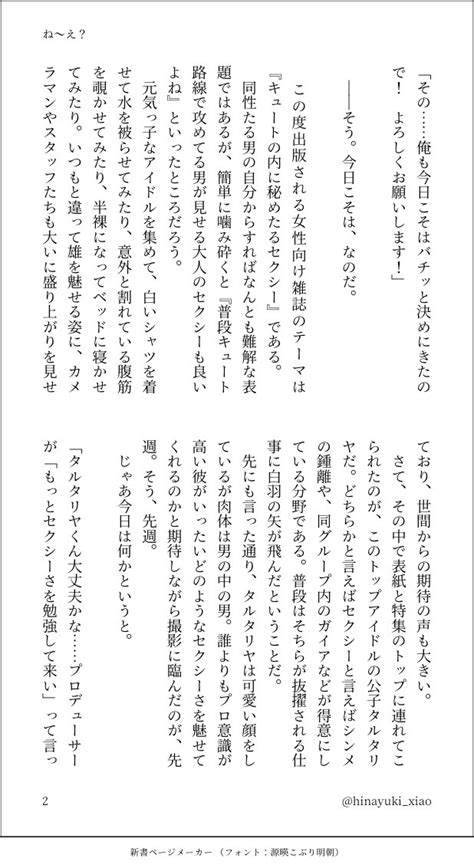 ね〜え？
「その……俺も今日こそはバチッと決めにきたの
で！　よろしくお願いします！」
――そう。今日こそは、なのだ。
この度出版される女性向け雑誌のテーマは
『キュートの内に秘めたるセクシー』である。
同性たる男の自分からすればなんとも難解な表
題ではあるが、簡単に噛み砕くと『普段キュート
路線で攻めてる男が見せる大人のセクシーも良い
よね』といったところだろう。
元気っ子なアイドルを集めて、白いシャツを着
せて水を被らせてみたり、意外と割れている腹筋
を覗かせてみたり、半裸になってベッドに寝かせ
てみたり。いつもと違って雄を魅せる姿に、カメ
ラマンやスタッフたちも大いに盛り上がりを見せ
ており、世間からの期待の声も大きい。
さて、その中で表紙と特集のトップに連れてこ
られたのが、このトップアイドルの公子タルタリ
ヤだ。どちらかと言えばセクシーと言えばシンメ
の鍾離や、同グループ内のガイアなどが得意にし
ている分野である。普段はそちらが抜擢される仕
事に白羽の矢が飛んだということだ。
先にも言った通り、タルタリヤは可愛い顔をし
ているが肉体は男の中の男。誰よりもプロ意識が
高い彼がいったいどのようなセクシーさを魅せて
くれるのかと期待しながら撮影に臨んだのが、先
週。そう、先週。
じゃあ今日は何かというと。
「タルタリヤくん大丈夫かな……プロデューサー
が「もっとセクシーさを勉強して来い」って言っ
2
@hinayuki_xiao
新書ページメーカー（フォント：源暎こぶり明朝）